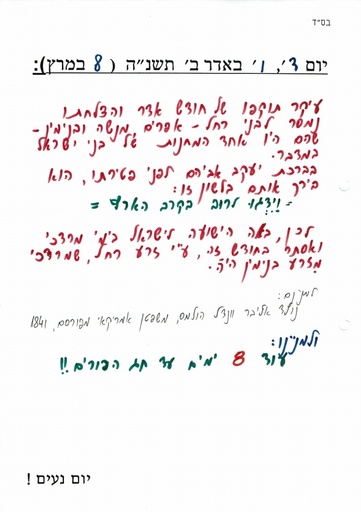 בס״ד
יום ד׳, ו׳ באדר ב׳ תשנ״ה (8 במרץ):
עיקר תוקפו של חודש אדר והצלחתו
נמסר לבני רחל - אפרים, מנשה ובנימין -
שהם היו אחד המחנות של בני ישראל
במדבר.
בברכת יעקב אביהם לפני פטירתו, הוא
בירך אותם בלשון זו:
= וידגו לרוב בקרב הארץ =
לכן, באה הישועה לישראל בימי מרדכי
ואסתר בחודש זה, ע״י זרע רחל, שמרדכי
מזרע בנימין היה.
למניינם:
נולד אוליבר וונדל הולמס, משפטן אמריקאי מפורסם, 1841
ולמנייננו:
עוד 8 ימים עד חג הפורים!!
יום נעים!